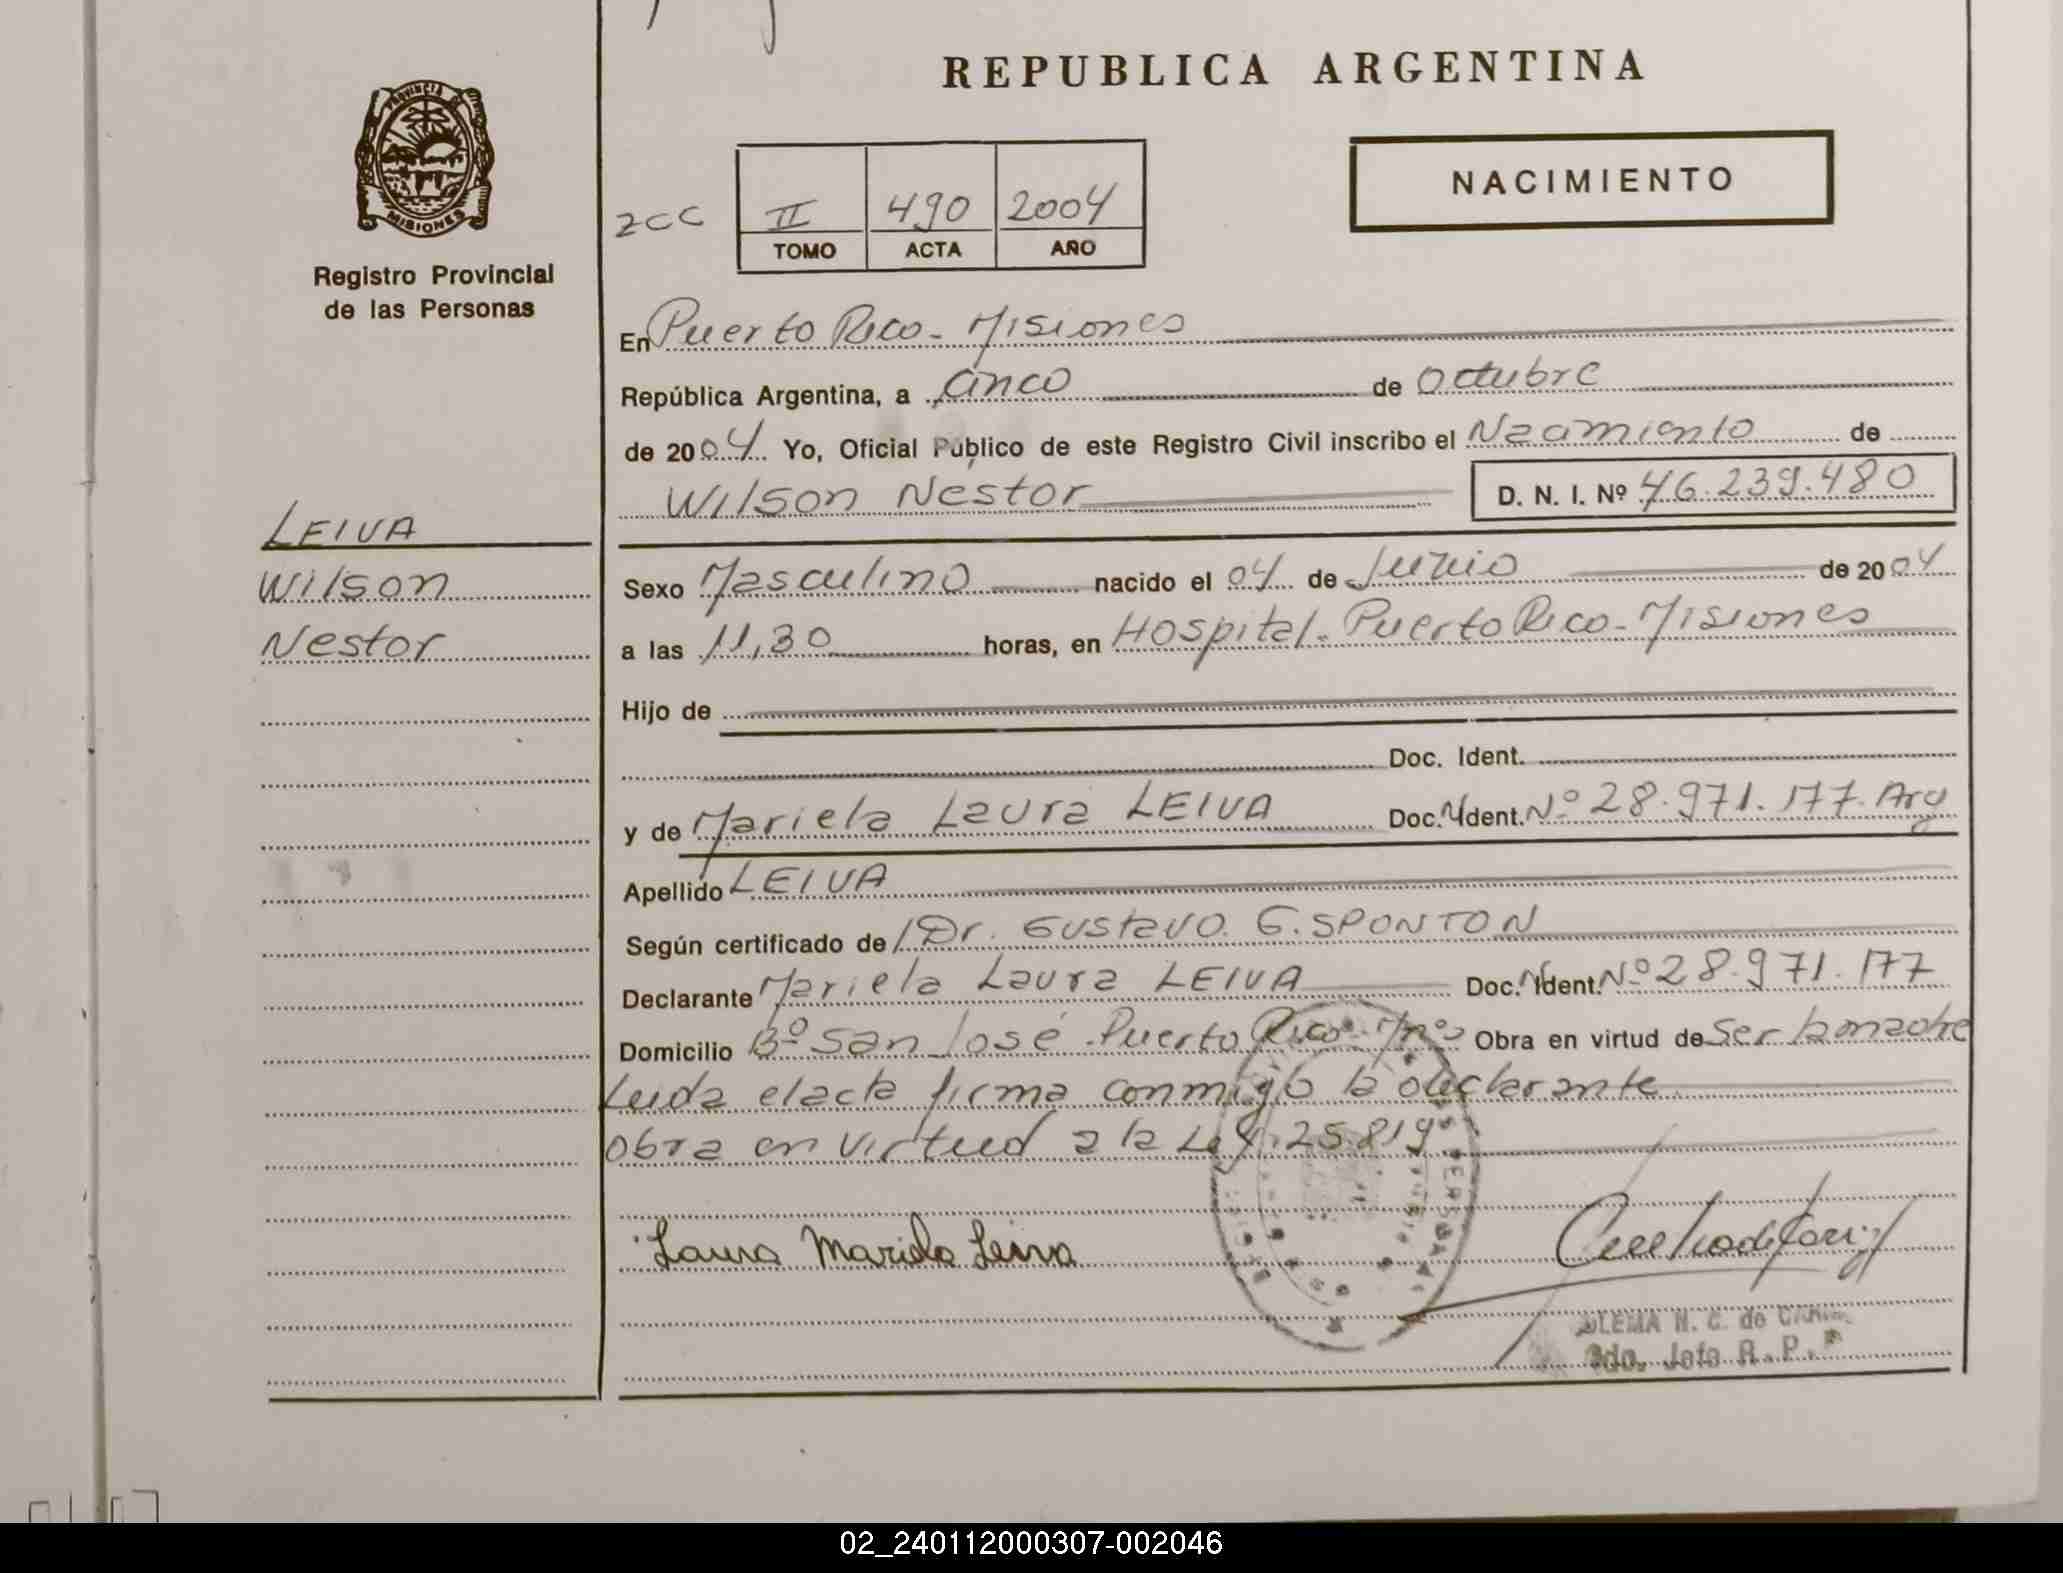 REPUBLICA ARGENTINA
PROVINCIA DE
MISIONES
Registro Provincial
de las Personas
NACIMIENTO
2CC II 490 2004
TOMO ACTA AÑO
En Puerto Rico - Misiones
República Argentina, a Cinco de Octubre
de 2004 Yo, Oficial Público de este Registro Civil inscribo el Nacimiento de
Wilson Nestor D. N. I. Nº 46.239.480
LEIVA
Wilson
Nestor
Sexo Masculino nacido el 04 de Junio de 2004
a las 11,30 horas, en Hospital. Puerto Rico - Misiones
Hijo de
Doc. Ident.
y de Mariela Laura LEIVA Doc. Ident. Nº 28.971.177. Arg
Apellido LEIVA
Según certificado de Dr. Gustavo. G. SPONTON
Declarante Mariela Laura LEIVA Doc. Ident. Nº 28.971.177
Domicilio Bº San José - Puerto Rico - Mnes Obra en virtud de Ser la madre
Leida el acta firma conmigo la declarante
obra en virtud a la Ley. 25.819
Laura Mariela Leiva
N. C. de
Jefe R. P.
02_240112000307-002046